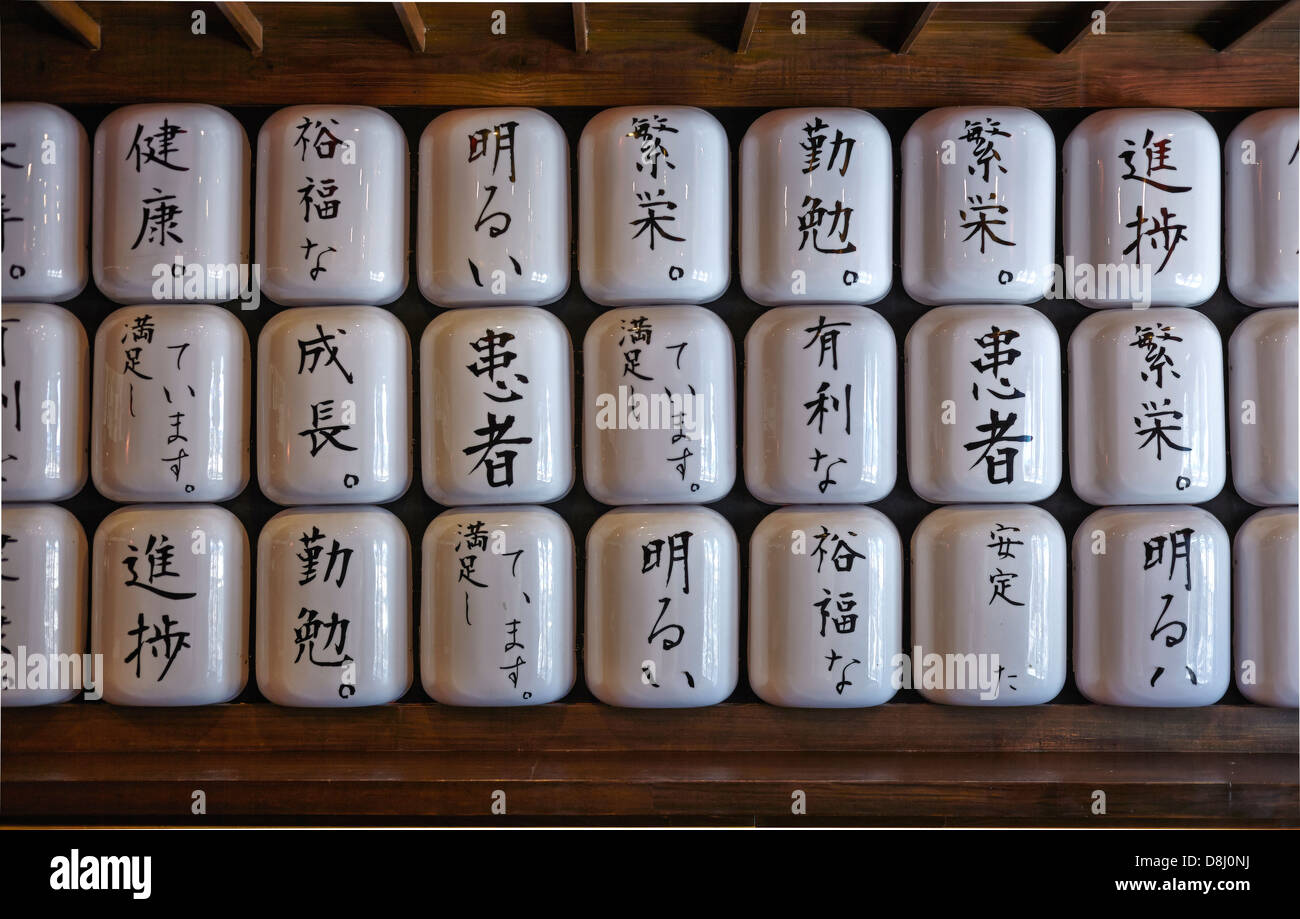 健康。
裕福な
明るい
繁栄。
勤勉。
繁栄。
進捗
満足し
ています。
成長。
患者。
満足し
ています。
有利な
患者。
繁栄。
進捗
勤勉。
満足し
ています。
明るい
裕福な
安定た
明るい
alamy
Image ID: D8J0NJ
www.alamy.com